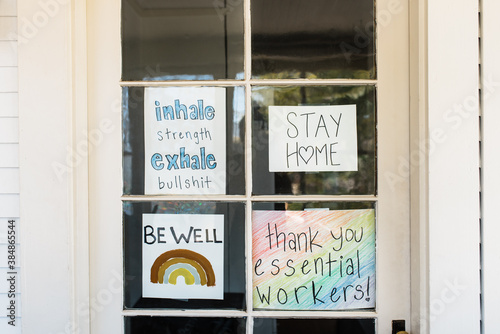 inhale
strength
exhale
bullshit
STAY
HOME
BE WELL
thank you
essential
workers!
Adobe Stock | #384865544